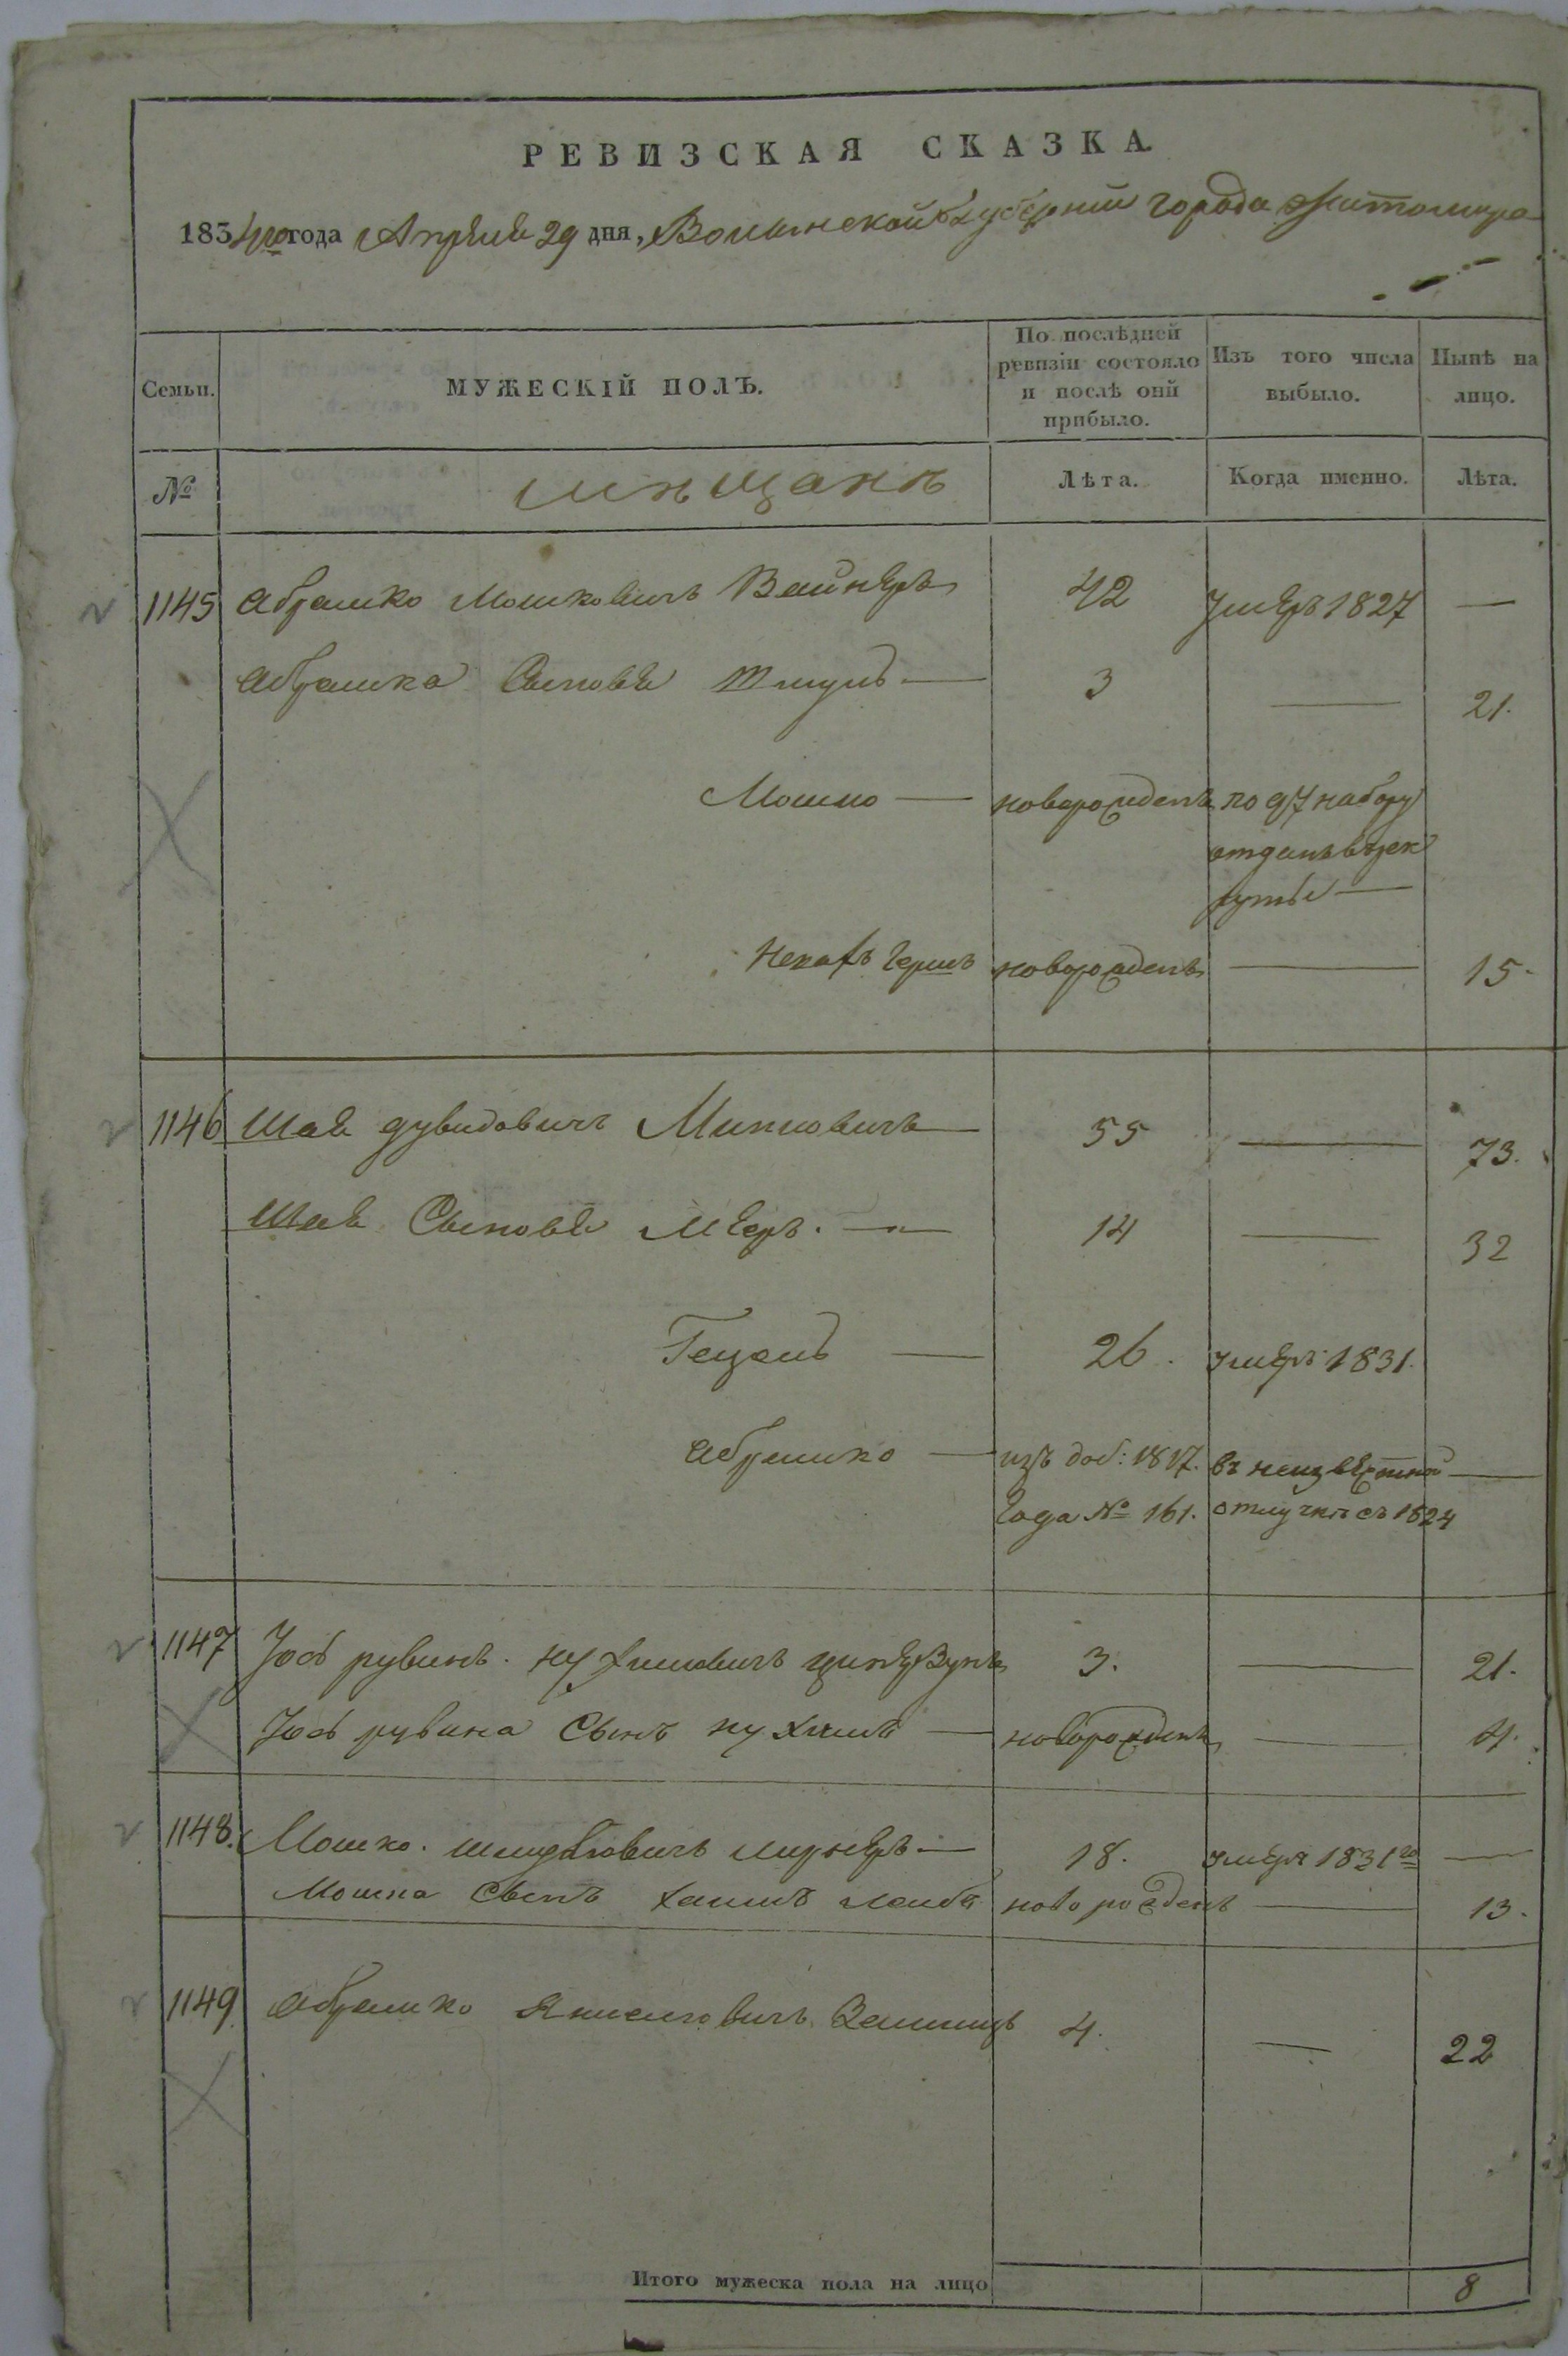 РЕВИЗСКАЯ СКАЗКА.
1834го года Апреля 29 дня, Волынской Губернии города Житомира
Семьи. МУЖЕСКІЙ ПОЛЪ. По послѣдней ревизіи состояло и послѣ оній прибыло. Изъ того числа выбыло. Нынѣ на лицо.
№ мѣщанъ Лѣта. Когда именно. Лѣта.
1145 Абрамко Мошковичъ Вайнеръ 42 умеръ 1827 —
Абрамка Сыновья 3 — 21.
Мошко — новорожденъ по 97 набору
отданъ въ рек
руты —
Гершъ новорожденъ — 15.
1146 Шая дувидовичъ — 55 — 73.
Шая Сыновья Мееръ. — 14 — 32
Гецель — 26. умеръ 1831.
Абрамко — изъ доб: 1817. въ неизвестной —
Года № 161. отлучкѣ съ 1824
1147 Іось рувинъ. нухимовичъ 3. — 21.
Іось рувина Сынъ нухимъ — новорожденъ — 4.
1148. Мошко. лирнеръ — 18. умеръ 1831го —
Мошка Сынъ хаимъ лейба новорожденъ — 13.
1149. Абрамко 4. — 22
Итого мужеска пола на лицо 8